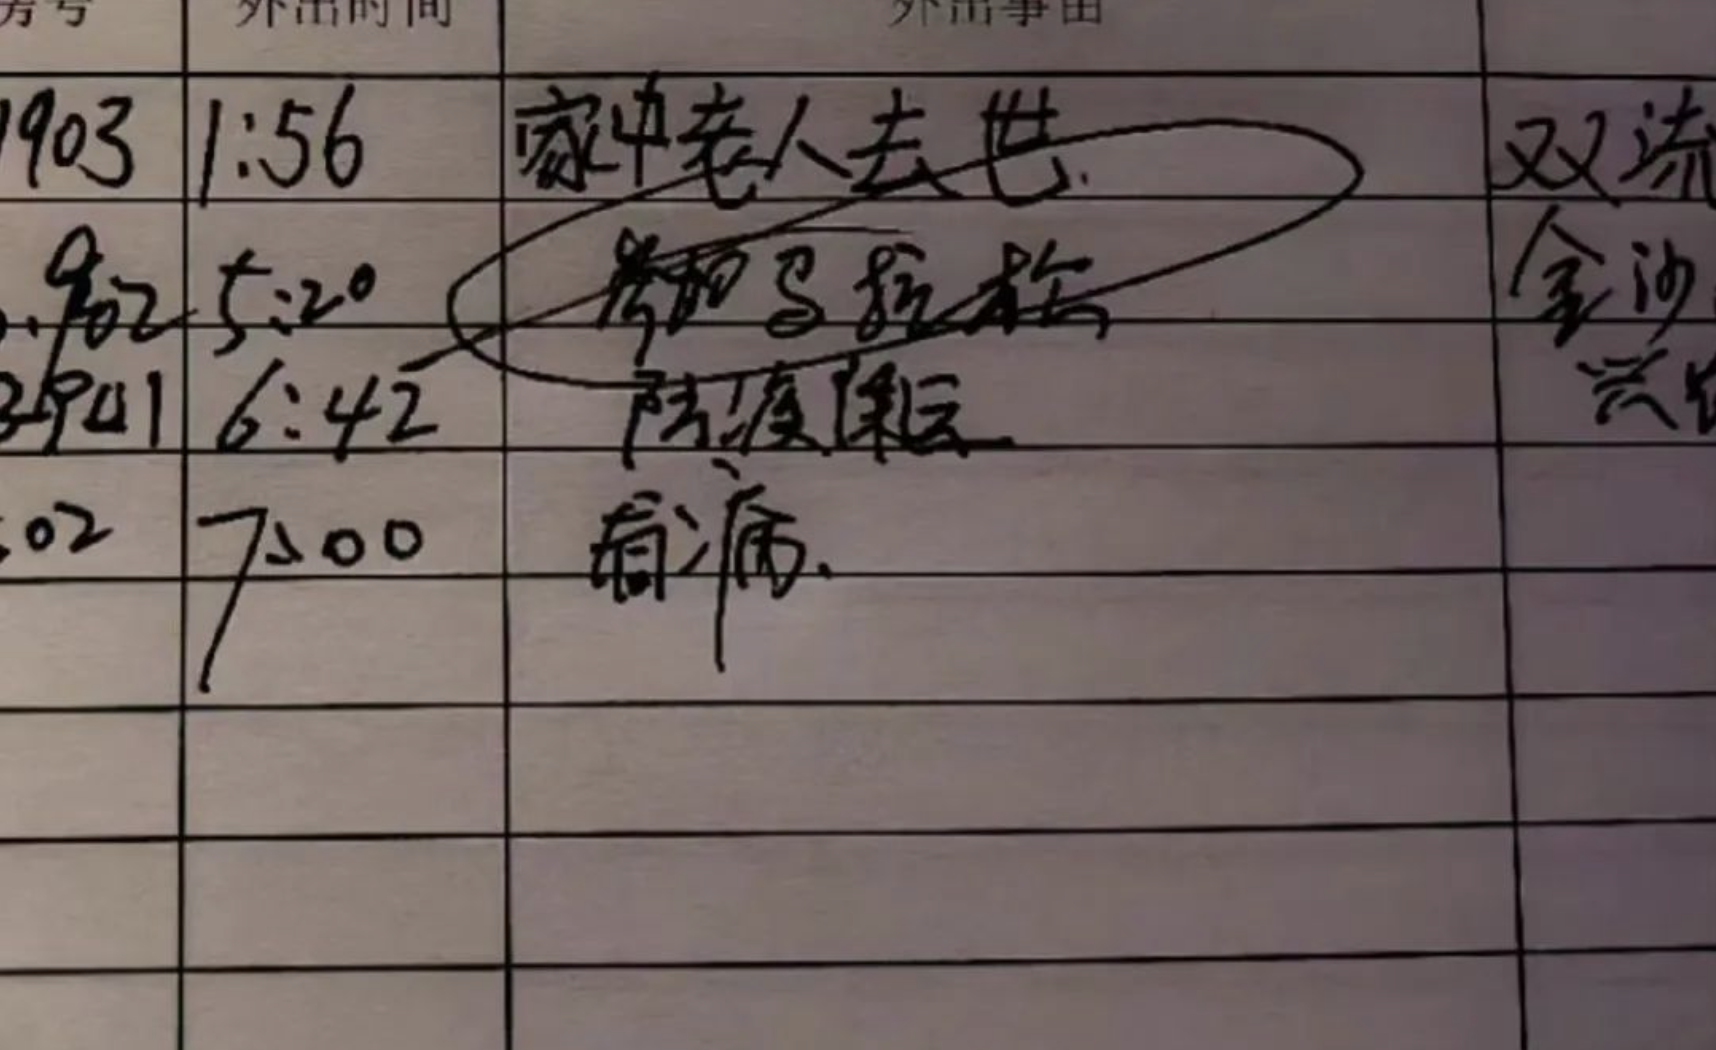 房号 外出时间 外出事由
1903 1:56 家中老人去世. 双流
902 5:20 参加马拉松 金沙
3-941 6:42 防疫保云 兴
02 7:00 看病.